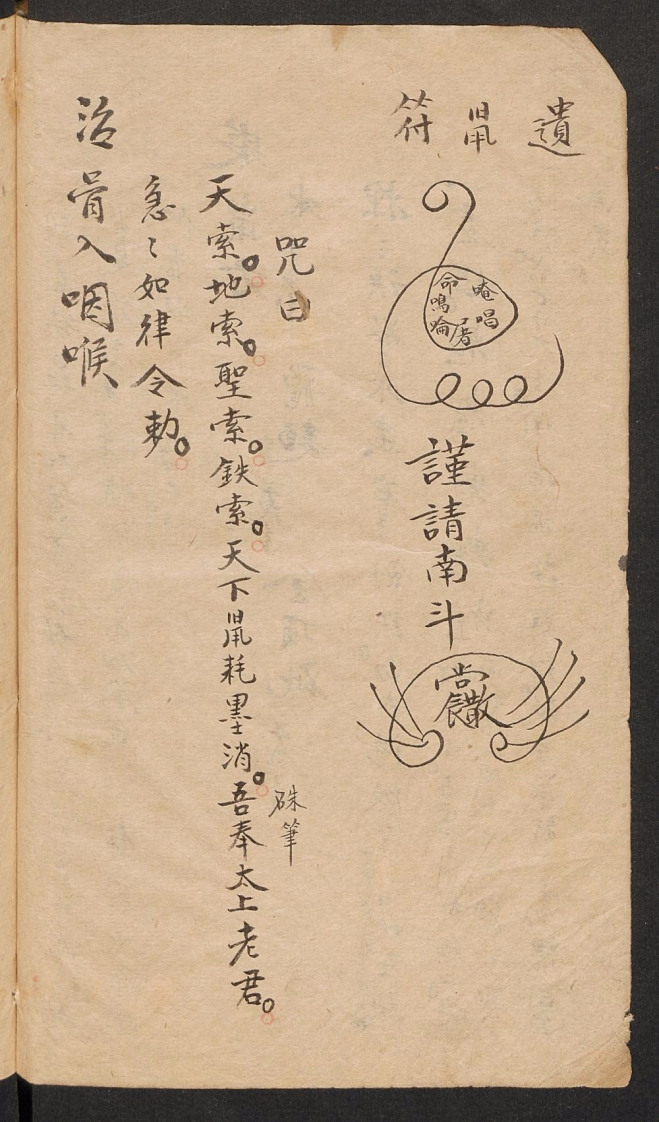 遣鼠符
唵唱
命鳴
啼屠
謹請南斗
咒曰
天索。地索。聖索。鉄索。天下鼠耗墨消。吾奉太上老君。
硃筆
急〻如律令勅。
治骨入咽喉